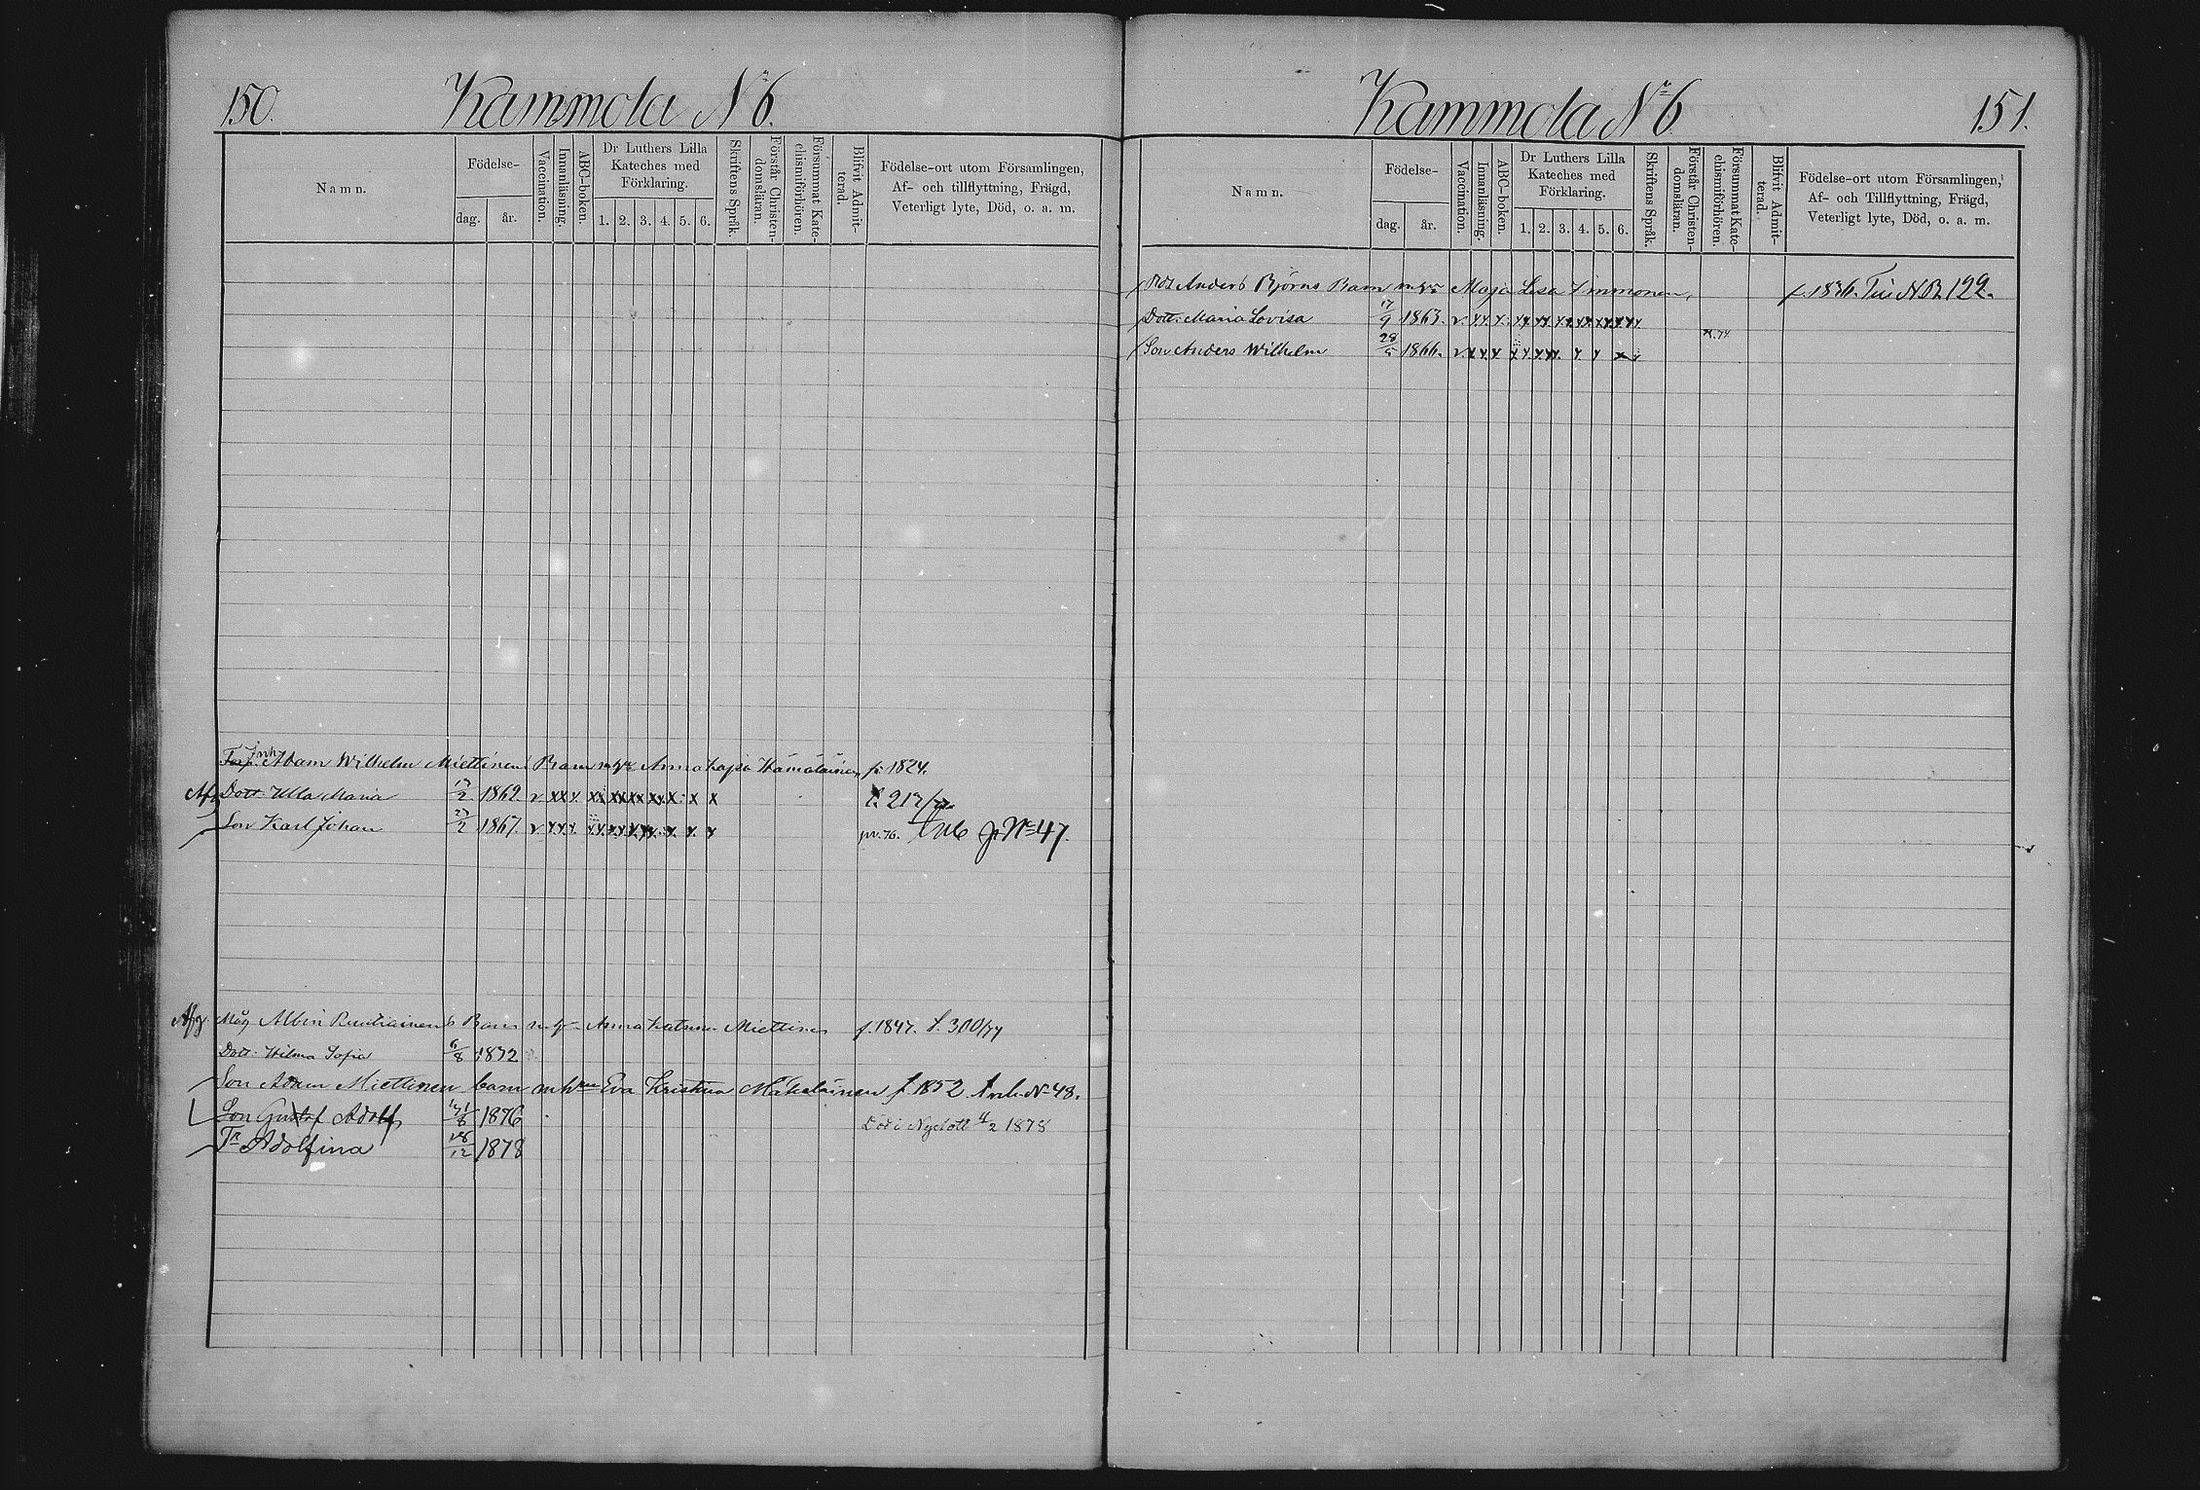 150.
Kammola No 6.
Namn.
Födelse-
dag.
år.
Vaccination.
Innanläsning.
ABC-boken.
Dr Luthers Lilla
Kateches med
Förklaring.
1. 2. 3. 4. 5. 6.
Skriftens Språk.
Förstår Christen-
domsläran.
Försummat Kate-
chismiförhören.
Blifvit Admit-
terad.
Födelse-ort utom Församlingen,
Af- och tillflyttning, Frägd,
Veterligt lyte, Död, o. a. m.
Torp. Inh. Adam Wilhelm Miettinens Barn Anna Kajsa Hämäläinen f. 1824.
Dott. Ulla Maria 17/2 1862 v xx x
Son Karl Johan 27/2 1867 v x x x No 47.
Afg. Måg Albin Barn Anna Katrina Miettinen f. 1847. S. 300/74
Dott. Hilma Sofia 6/8 1872
Son Adam Miettinen barn Eva Kristina f. 1852 No 48.
Son Gustaf Adolf 1876 Död i Nyslott 4/2 1878
Adolfina 1878
Kammola No 6
151.
Namn.
Födelse-
dag.
år.
Vaccination.
Innanläsning.
ABC-boken.
Dr Luthers Lilla
Kateches med
Förklaring.
1. 2. 3. 4. 5. 6.
Skriftens Språk.
Förstår Christen-
domsläran.
Försummat Kate-
chismiförhören.
Blifvit Admit-
terad.
Födelse-ort utom Församlingen,
Af- och Tillflyttning, Frägd,
Veterligt lyte, Död, o. a. m.
Anders Björns Barn Maja Lisa Immonen, f. 1836. 122.
Dott. Maria Lovisa 17/9 1863. v. x x x
Son Anders Wilhelm 28/5 1866. v x x x